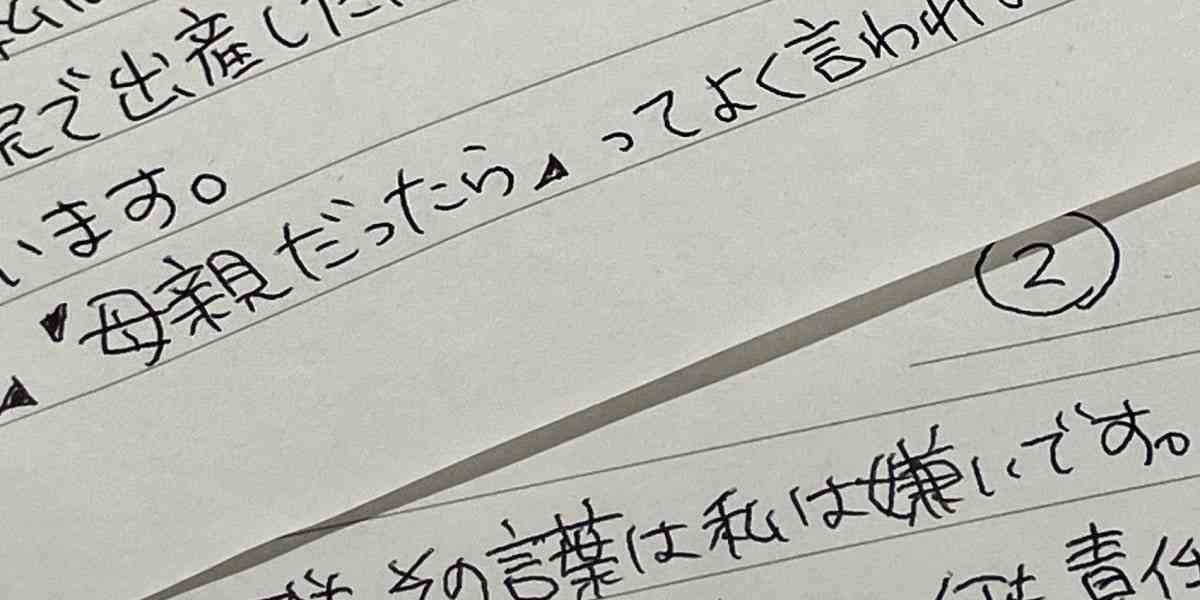 で出産した
います。
▼母親だったら▲ってよく言われ
▲
②
その言葉は私は嫌いです。
責任